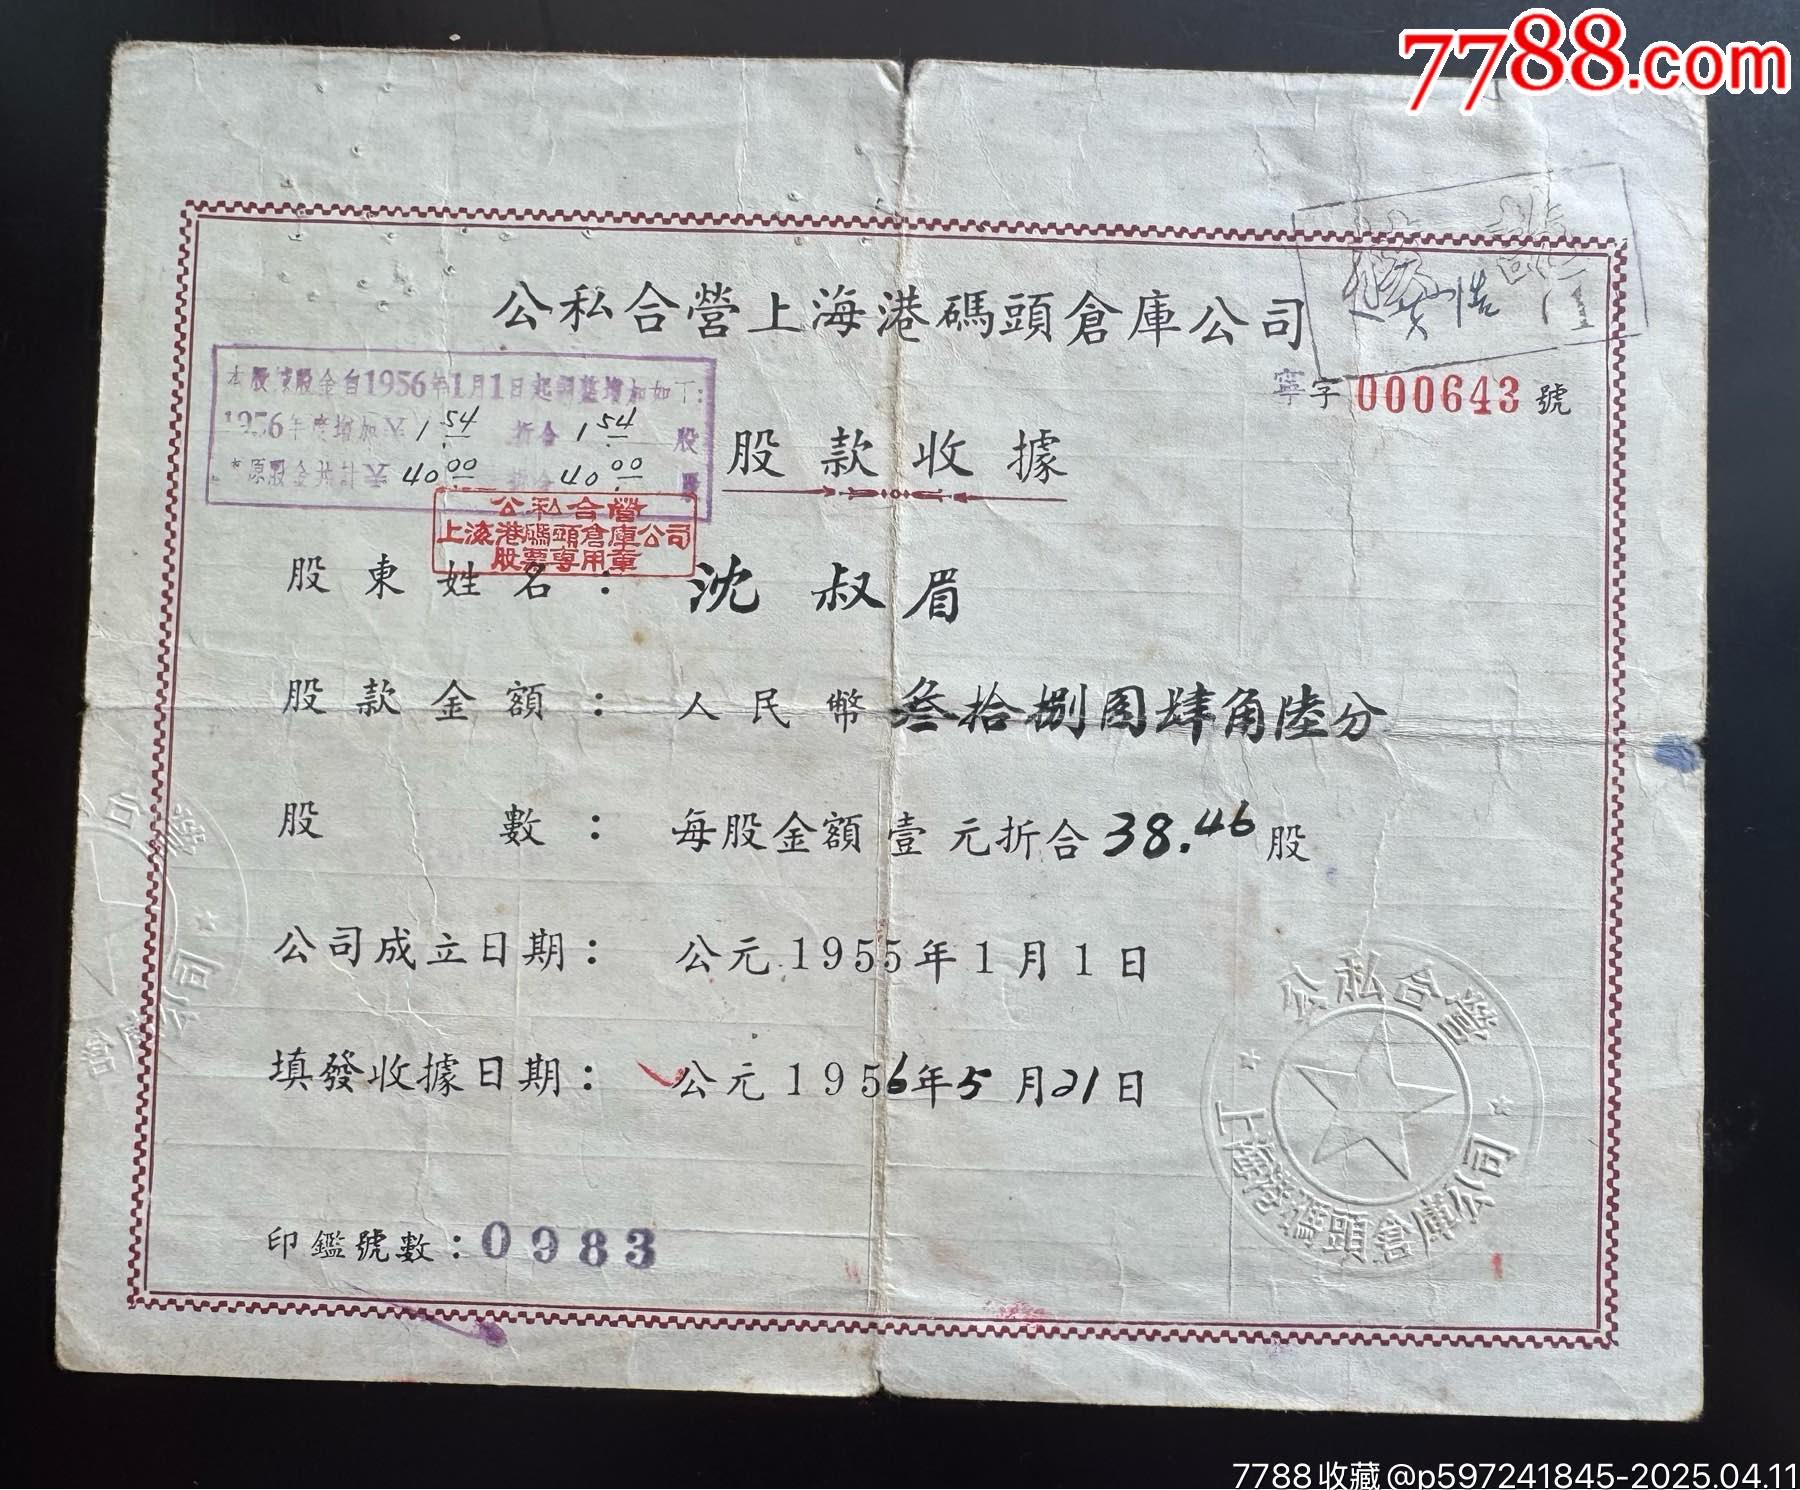 7788.com
公私合營上海港碼頭倉庫公司
寧字 000643 號
本股款股金自1956年1月1日起調整增加如下:
1956年度增加 1 54 折合 1 54 股
原股金共計 40 00 折合 40 00 股
股款收據
公私合營
上海港碼頭倉庫公司
股票專用章
股東姓名: 沈叔眉
股款金額: 人民幣叁拾捌圓肆角陸分
股數: 每股金額壹元折合 38.46 股
公司成立日期: 公元1955年1月1日
填發收據日期: 公元1956年5月21日
印鑑號數: 0983
公私合營
上海港碼頭倉庫公司
合營
倉庫公司
7788收藏@p597241845-2025.04.11